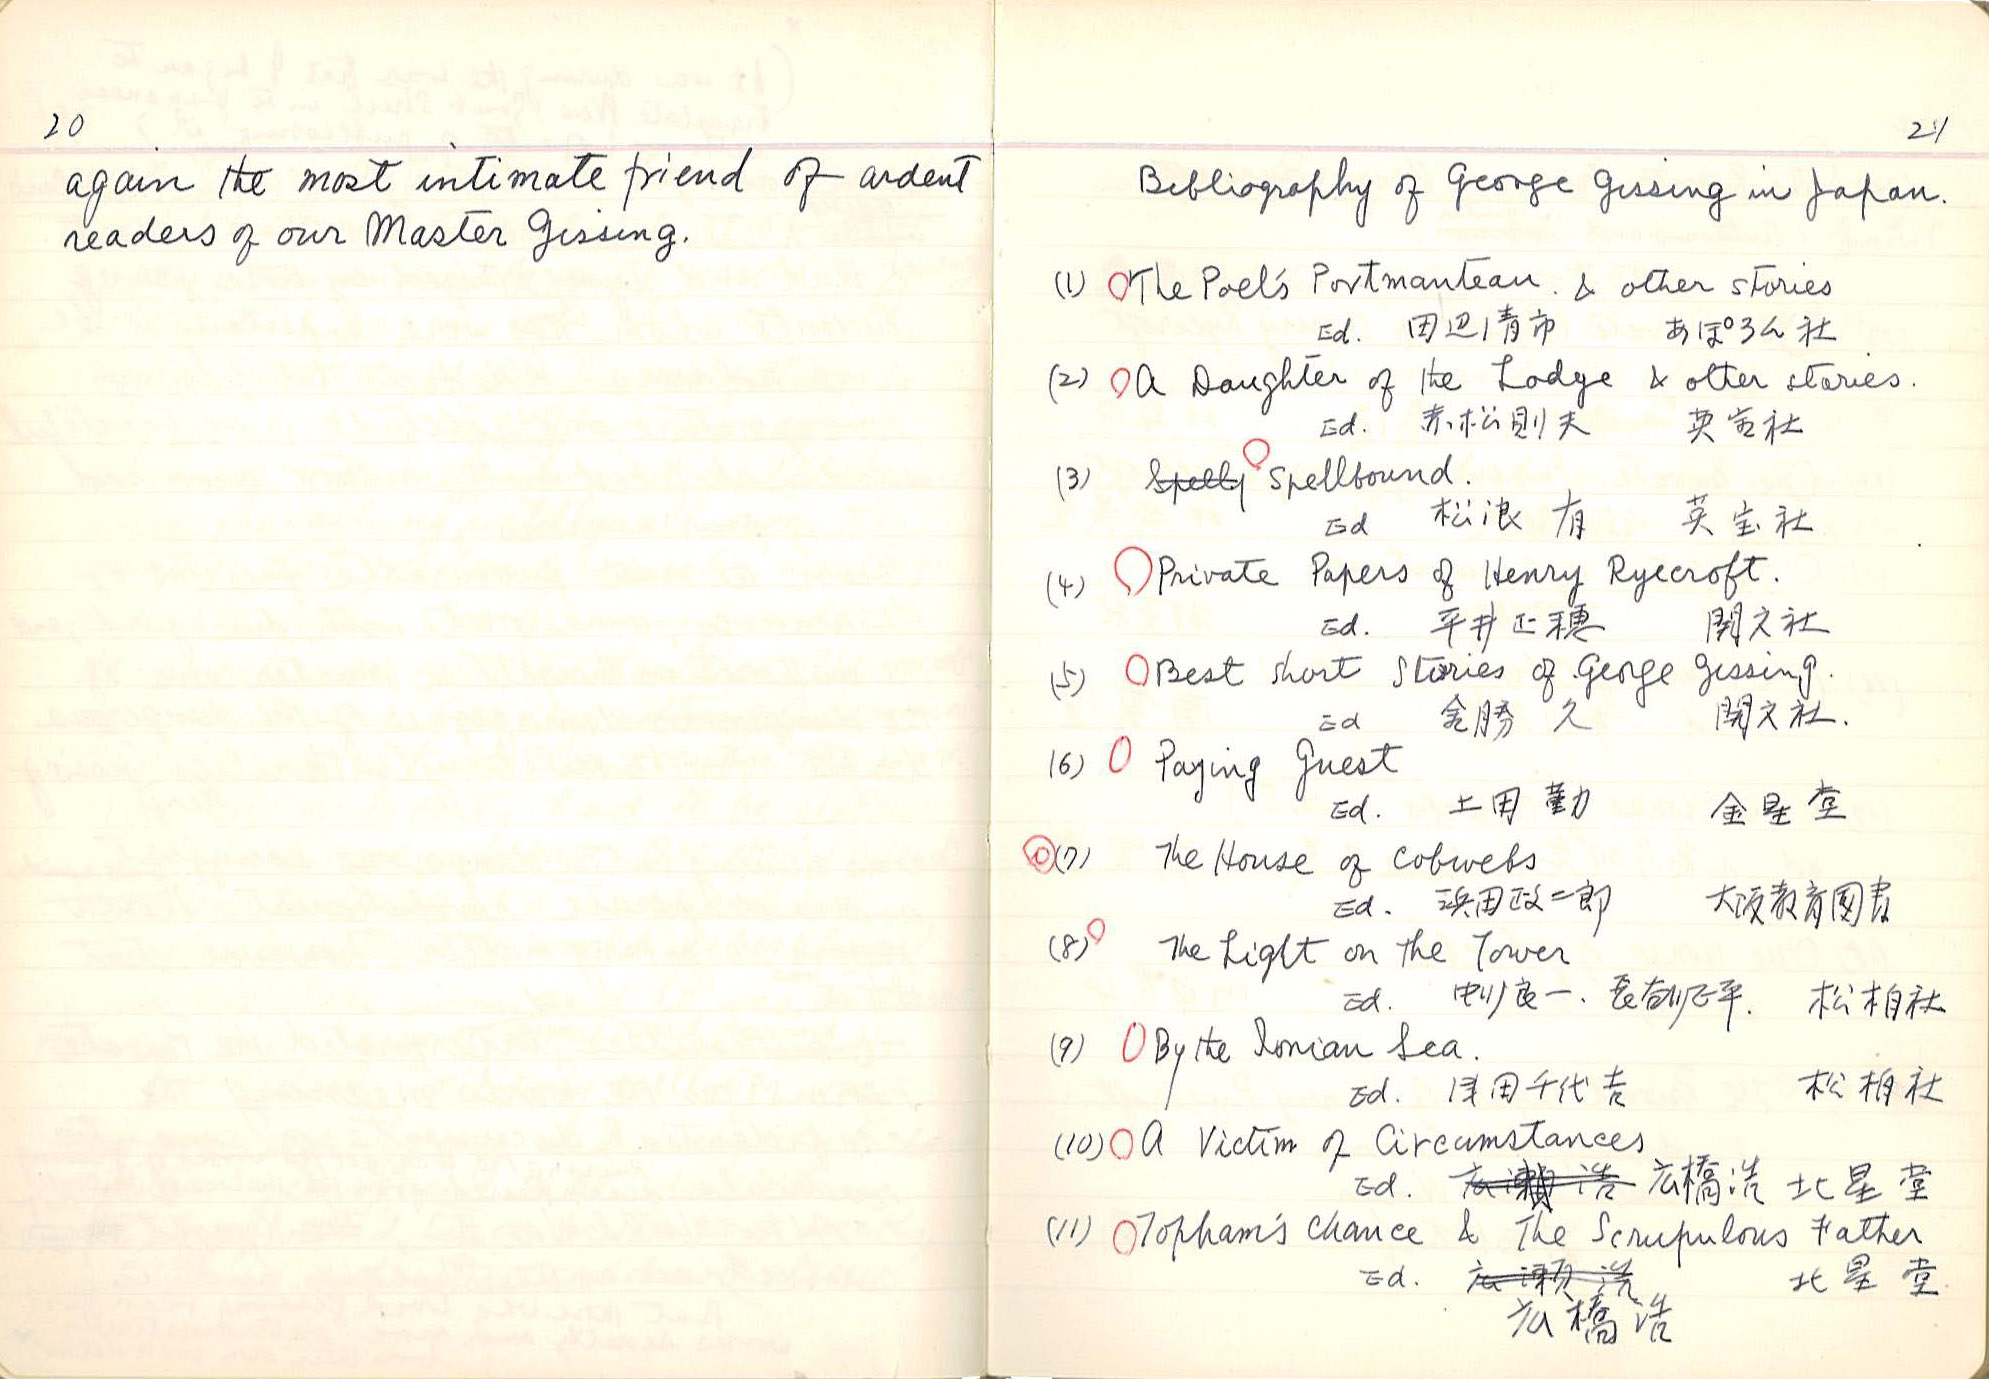 20
again the most intimate friend of ardent
readers of our Master Gissing.
21
Bibliography of George Gissing in Japan.
(1) The Poet's Portmanteau. & other stories
Ed. 田辺清市 あぽろん社
(2) A Daughter of the Lodge & other stories.
Ed. 赤松則夫 英宝社
(3) Spelly Spellbound.
Ed 松浪 有 英宝社
(4) Private Papers of Henry Ryecroft.
Ed. 平井正穂 開文社
(5) Best short Stories of George Gissing.
Ed 金勝 久 開文社.
(6) Paying Guest
Ed. 土田 勤 金星堂
(7) The House of Cobwebs
Ed. 浜田政二郎 大阪教育図書
(8) The Light on the Tower
Ed. 良一. 松柏社
(9) By the Ionian Sea.
Ed. 津田千代吉 松柏社
(10) A Victim of Circumstances
Ed. 広瀬 浩 広橋浩 北星堂
(11) Topham's Chance & The Scrupulous Father
Ed. 広瀬 浩 北星堂
広橋浩